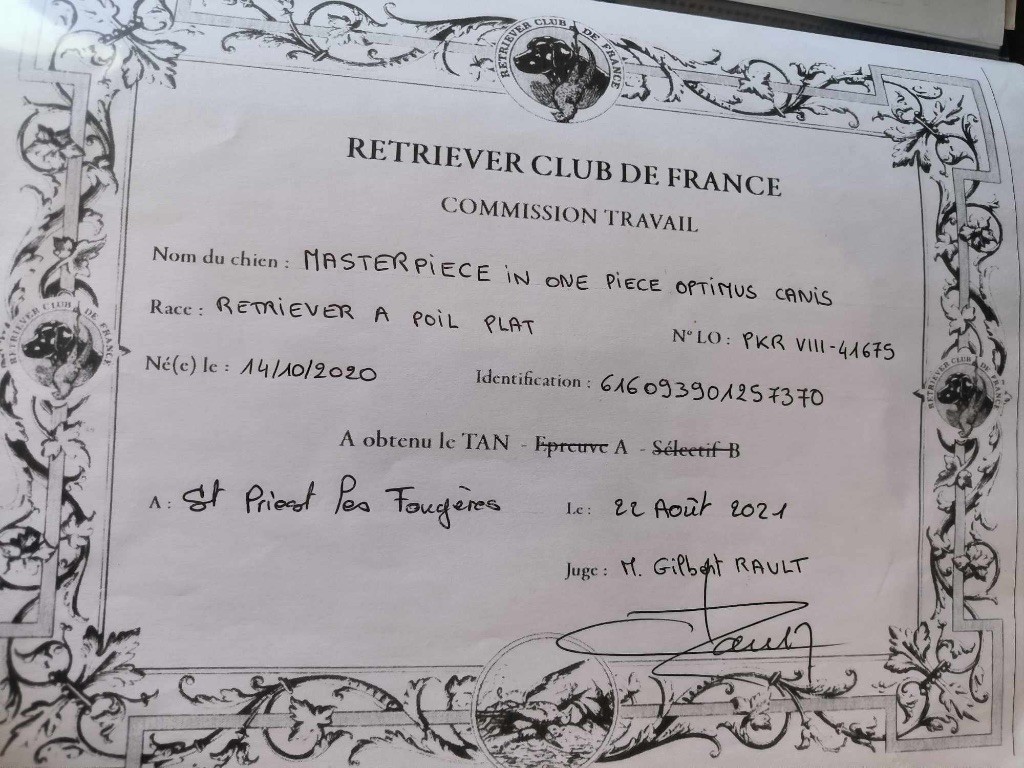 RETRIEVER CLUB DE FRANCE
RETRIEVER CLUB DE FRANCE
COMMISSION TRAVAIL
Nom du chien : MASTERPIECE IN ONE PIECE OPTIMUS CANIS
Race : RETRIEVER A POIL PLAT N° LO : PKR VIII-41675
Né(e) le : 14/10/2020 Identification : 616093901257370
A obtenu le TAN - Epreuve A - Sélectif B
A : St Priest les Fougères Le : 22 Août 2021
Juge : M. Gilbert RAULT
RETRIEVER CLUB DE FRANCE
RETRIEVER CLUB DE FRANCE